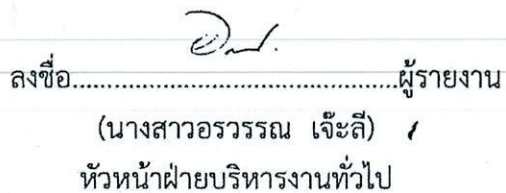 ลงชื่อ................................................ผู้รายงาน
(นางสาวอรวรรณ เจ๊ะลี)
หัวหน้าฝ่ายบริหารงานทั่วไป